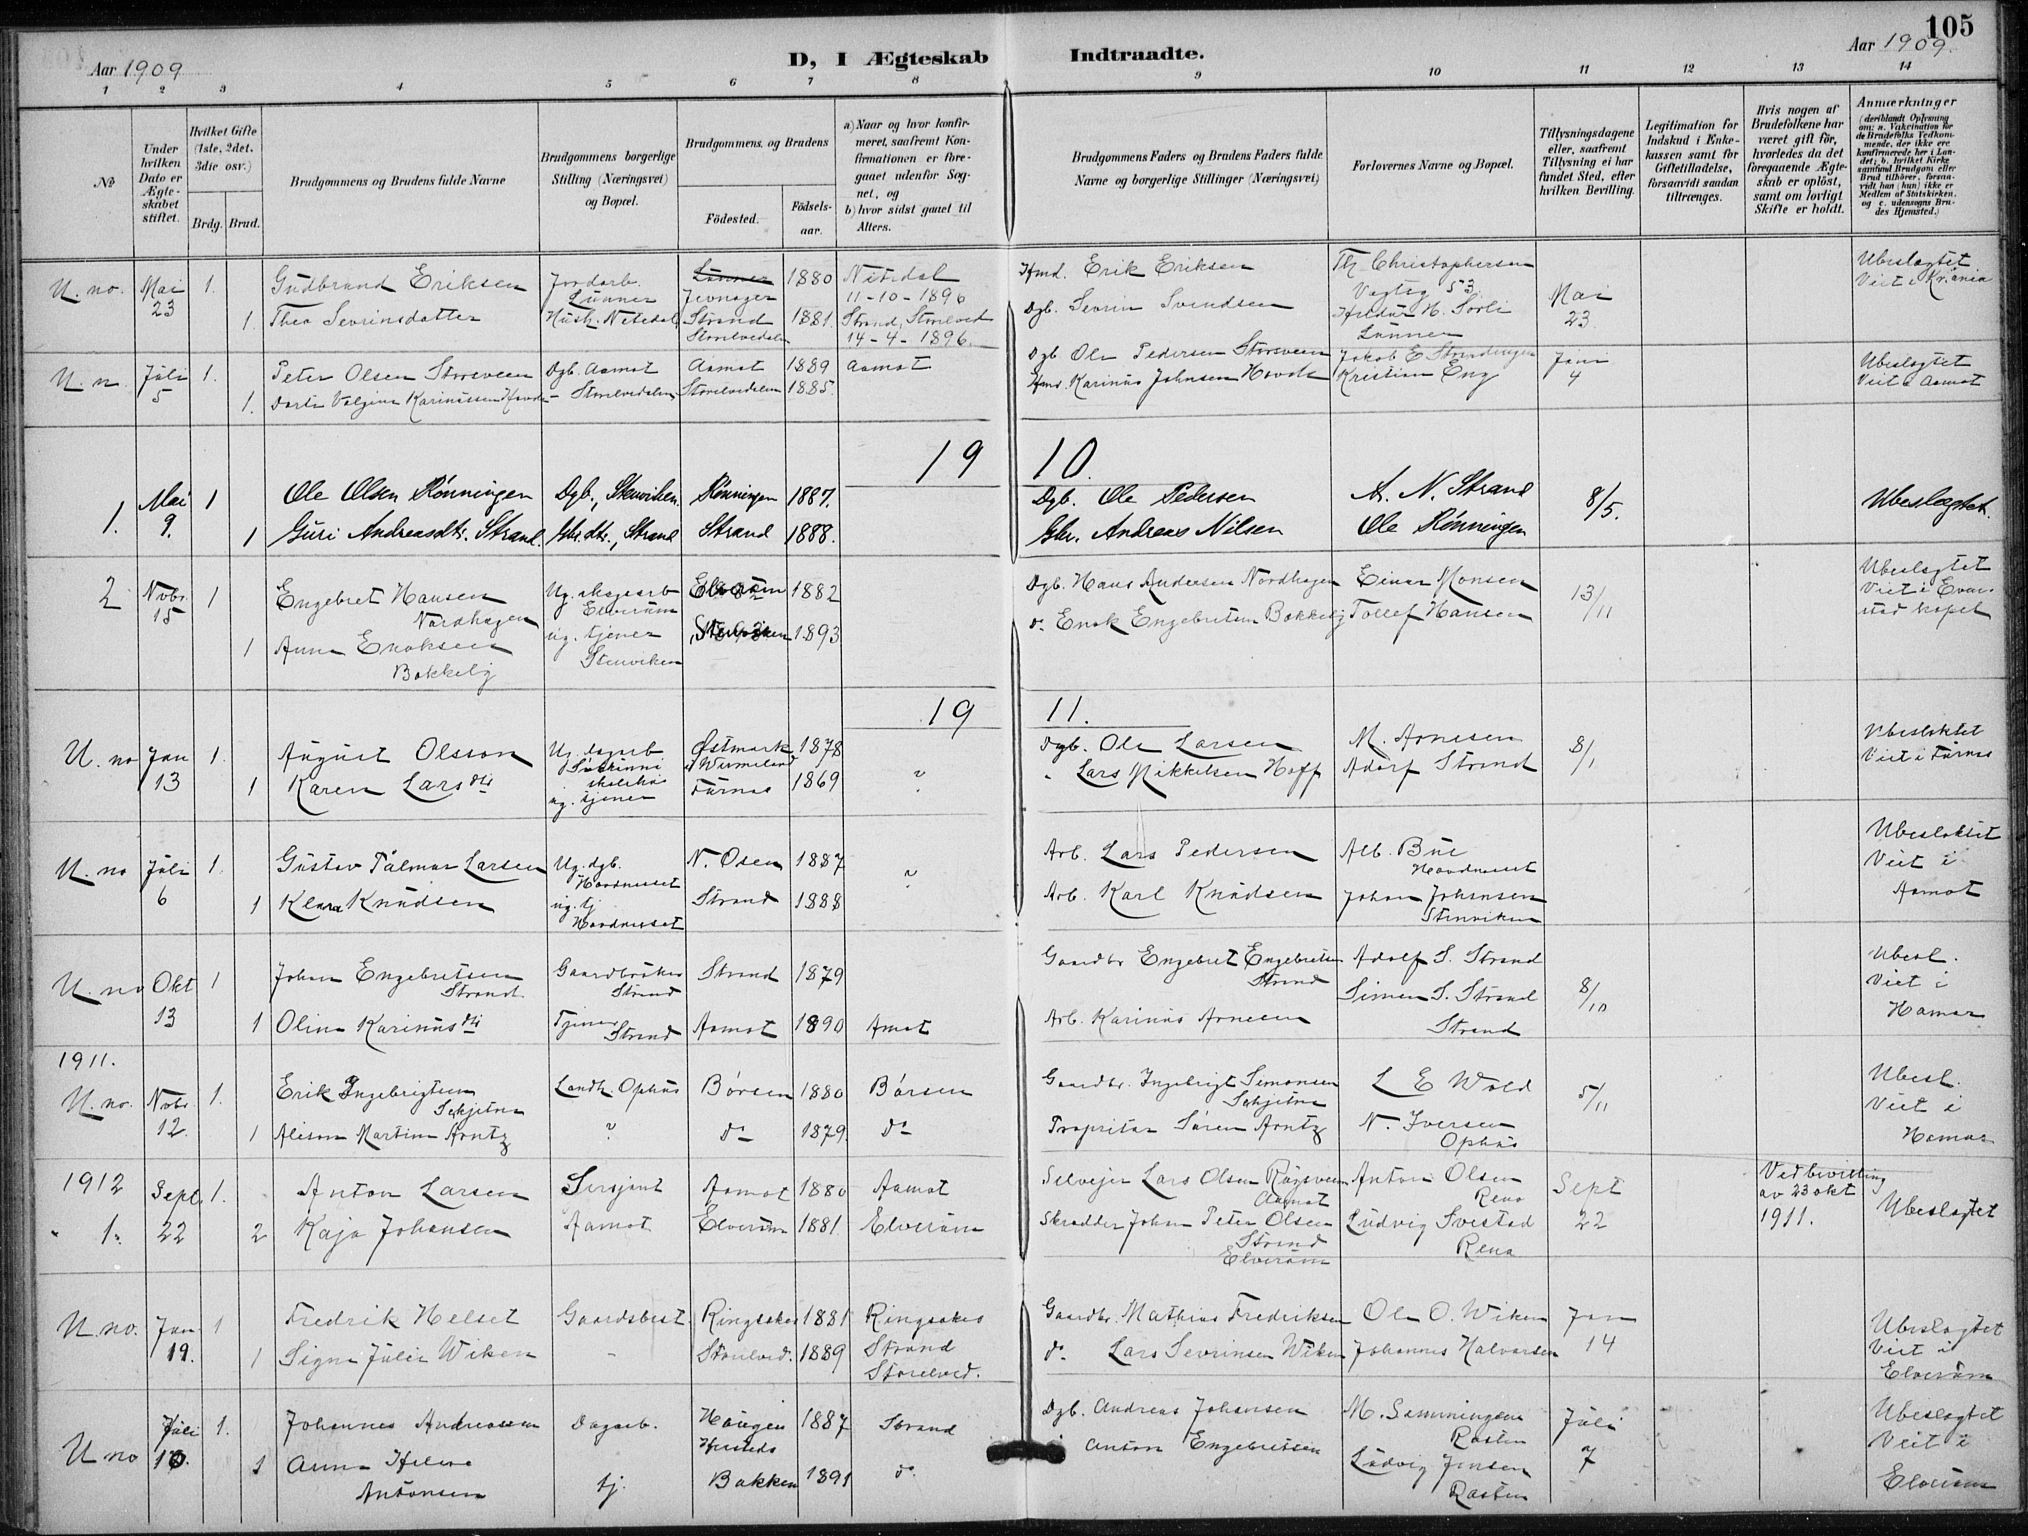 105
Aar 1909
D, I Ægteskab Indtraadte.
Aar 1909.
1 2 3 4 5 6 7 8 9 10 11 12 13 14
№
Under hvilken Dato er Ægteskabet stiftet.
Hvilket Gifte (1ste, 2det, 3die osv.)
Brdg. Brud.
Brudgommens og Brudens fulde Navne
Brudgommens borgerlige Stilling (Næringsvei) og Bopæl.
Brudgommens og Brudens
Födested.
Födsels-aar.
a) Naar og hvor konfirmeret, saafremt Konfirmationen er foregaaet udenfor Sognet, og
b) hvor sidst gaaet til Alters.
Brudgommens Faders og Brudens Faders fulde Navne og borgerlige Stillinger (Næringsvei)
Forlovernes Navne og Bopæl.
Tillysningsdagene eller, saafremt Tillysning ei har fundet Sted, efter hvilken Bevilling.
Legitimation for Indskud i Enkekassen samt for Giftetilladelse, forsaavidt saadan tiltrænges.
Hvis nogen af Brudefolkene har været gift för, hvorledes da det foregaaende Ægteskab er oplöst, samt om lovligt Skifte er holdt.
Anmærkninger (deriblandt Oplysning om: a. Vakcination for de Brudefolks Vedkommende, der ikke ere konfirmerede her i Landet; b. hvilket Kirkesamfund Brudgom eller Brud tilhörer, forsaavidt han (hun) ikke er Medlem af Statskirken, og c. udensogns Brudes Hjemsted.)
U. no. Mai 23 1. Gudbrand Eriksen Jordarb. Lunner Lunner Jevnager 1880 Nitedal 11-10-1896 Hmd. Erik Eriksen Th Christophersen Vogtsg 53 Mai 23 Ubeslagtet Viet i Kr.ania
1. Thea Sevrinsdatter Hush. Nitedal Strand Storelvedalen 1881 Strand, Storelved 14-4-1896. Dgb. Sevrin Svendsen H. Sørli Lunner
U. n. Juli 5 1. Peter Olsen Storsveen Dgb. Aamot Aamot 1889 Aamot Dgb Ole Pedersen Storsveen Jakob E Juni 4 Ubeslagtet Viet i Aamot
1. Karinussen - Storelvedalen Storelvedalen 1885. Hmd. Karinus Johnsen Kristian Eng
1910.
1. Mai 9. 1 Ole Olsen Rønningen Dgb., Stenviken Rønningen 1887. Dgb. Ole Pedersen A. N. Strand 8/5. Ubeslægtet.
1 Guri Andreasdtr. Strand. Gbr.dtr., Strand Strand 1888. Gbr. Andreas Nilsen Ole Rønningen
2 Novbr 15 1 Engebret Hansen Nordhagen Ug. skogsarb Elverum Elverum 1882 Dgb. Hans Andersen Nordhagen Einar Monsen 13/11 Ubeslagtet Viet i Evenstad kapel
1 Anna Enoksen Bakkely ug. tjener Stenviken Stenviken 1893 do. Enok Engebretsen Bakkely Tollef Hansen
1911.
U. no Jan 13 1. August Olsson Ug. dagarb Østmark i Wermeland 1878 Dgb. Ole Larsen M. Arnesen 8/1 Ubesloktet Viet i Furnes
1 Karen Larsdtr ug. tjener Furnes 1869 " " Lars Mikkelsen Hoff Adolf Strand
U. no Juli 6 1. Gustav Palmar Larsen Ug. dgb. N. Osen 1887 " Arb. Lars Pedersen Alb. Bue Ubesloktet Viet i Aamot
1 Klara Knudsen ug. tj Strand 1888 Arb. Karl Knudsen Johan Johansen Stenviken
U. no Okt 13 1 Johan Engebretsen Strand Gaardbruker Strand Strand 1879 Gaardbr Engebret Engebretsen Strand Adolf S. Strand 8/10 Ubesl. Viet i Hamar
1 Oline Karinusdtr Tjener Strand Aamot 1890 Amot Arb. Karinus Arnesen Simen S. Strand Strand
1911.
U. no. Novbr. 12 1. Erik Ingebrigtsen Skjetne Landh. Ophus Børsen 1880 Børsen Gaardbr. Ingebrigt Simonsen Skjetne L E Wold 5/11 Ubesl. Viet i Hamar
1 Martine Arntz " do 1879 do Propritær Søren Arntz N. Iversen Ophus
1912 Sept 22 1. Anton Larsen Sersjant Aamot 1880 Aamot Selveier Lars Olsen Aamot Anton Olsen Rena Sept 22 Ved bevilling av 23 okt 1911. Ubeslagtet
" 1. 2 Kaja Johansen Aamot Elverum 1881 Elverum Skredder Johan Peter Olsen Strand Elverum Ludvig Svestad Rena
U. no. Jan 19. 1 Fredrik Helset Gaardsbest. Ringsaker 1881 Ringsaker Gaardbr. Mathias Fredriksen Ole O. Wiken Jan 14 Ubeslagtet Viet i Elverum
1 Signe Julie Wiken - Storelved. 1889 Strand Storelved. do Lars Sevrinsen Wiken Johannes Halvorsen
U. no Juli 10. 1. Johannes Andreassen Dagarb. Haugen 1887 Strand Dgb. Andreas Johansen M. Rasten Juli 7 Ubeslagtet Viet i Elverum
1 Anna Helene Antonsen tj. Bakken 1891 do. Anton Engebretsen Ludvig Jensen Rasten